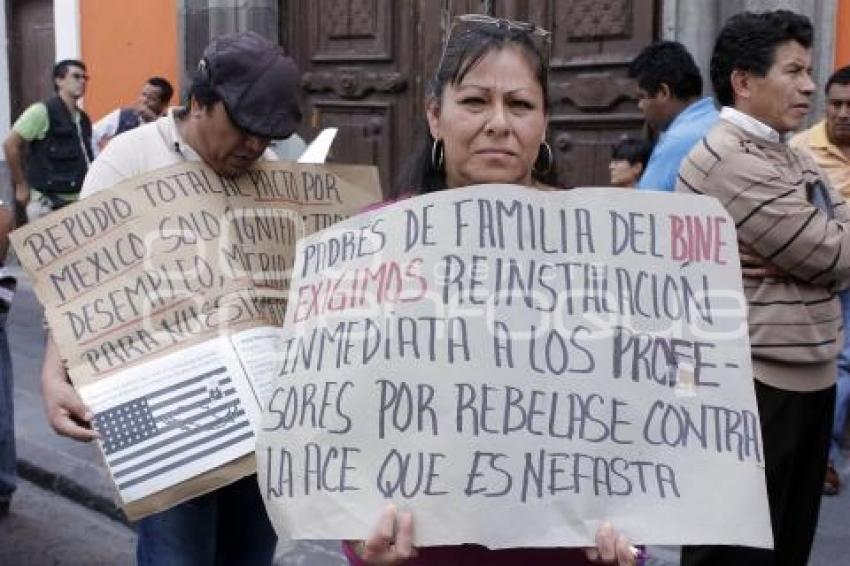 REPUDIO TOTAL AL PACTO POR
MEXICO SOLO
DESEMPLEO,
PARA
PADRES DE FAMILIA DEL BINE
EXIGIMOS REINSTALACIÓN
INMEDIATA A LOS PROFE-
SORES POR REBELASE CONTRA
LA ACE QUE ES NEFASTA
agencia
enfoque